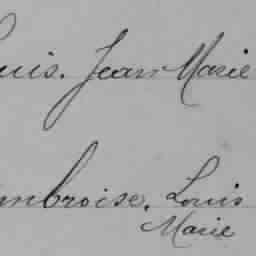 uis. Jean Marie
mbroise. Louis
Marie